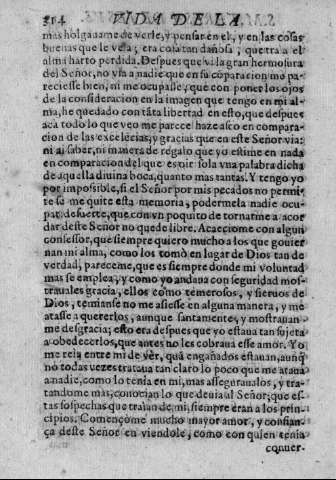 514 VIDA DE LA
mas holgauame de verle, y pensar en el, y en las cosas
buenas que le veia; era cosa tan dañosa, que tra a el
alma harto perdida. Despues que vi la gran hermosura
del Señor, no via a nadie que en su cóparacion me pa-
reciesse bien, ni me ocupasse; que con poner los ojos
de la consideracion en la imagen que tengo en mi al-
ma, he quedado con táta libertad en esto, que despues
acá todo lo que veo me parece haze asco en compara-
cion de las excelécias, y gracias que en este Señor via:
ni ai saber, ni manera de regalo que yo estime en nada
en comparacion del que es oir sola vna palabra dicha
de aquella diuina boca, quanto mas tantas. Y tengo yo
por impossible, si el Señor por mis pecados no permi-
te se me quite esta memoria, podermela nadie ocu-
par: de suerte, que con vn poquito de tornarme a acor
dar deste Señor no quede libre. Acaeciome con algun
confessor, que siempre quiero mucho a los que gouier
nan mi alma, como los tomo en lugar de Dios tan de
verdad, pareceme, que es siempre donde mi voluntad
mas se emplea, y como yo andaua con seguridad mos-
traualesgracia, ellos como temerosos, y sieruos de
Dios, temianse no me asiesse en alguna manera, y me
atasse a quererlos, aunque santamente, y mostrauan
me desgracia; esto era despues que yo estaua tan sujeta
a obedecerlos, que antes no les cobraua esse amor. Yo
me reia entre mi de ver, quá engañados estauan, aunq̃
no todas vezes trataua tan claro lo poco que me ataua
a nadie, como lo tenia en mi, mas asseguraualos, y tra-
tandome mas, conocian lo que deuia al Señor; que es-
tas sospechas que traian de mi, siempre eran a los prin-
cipios. Començome mucho mayor amor, y confian-
ça deste Señor en viendole, como con quien tenia
conuer-